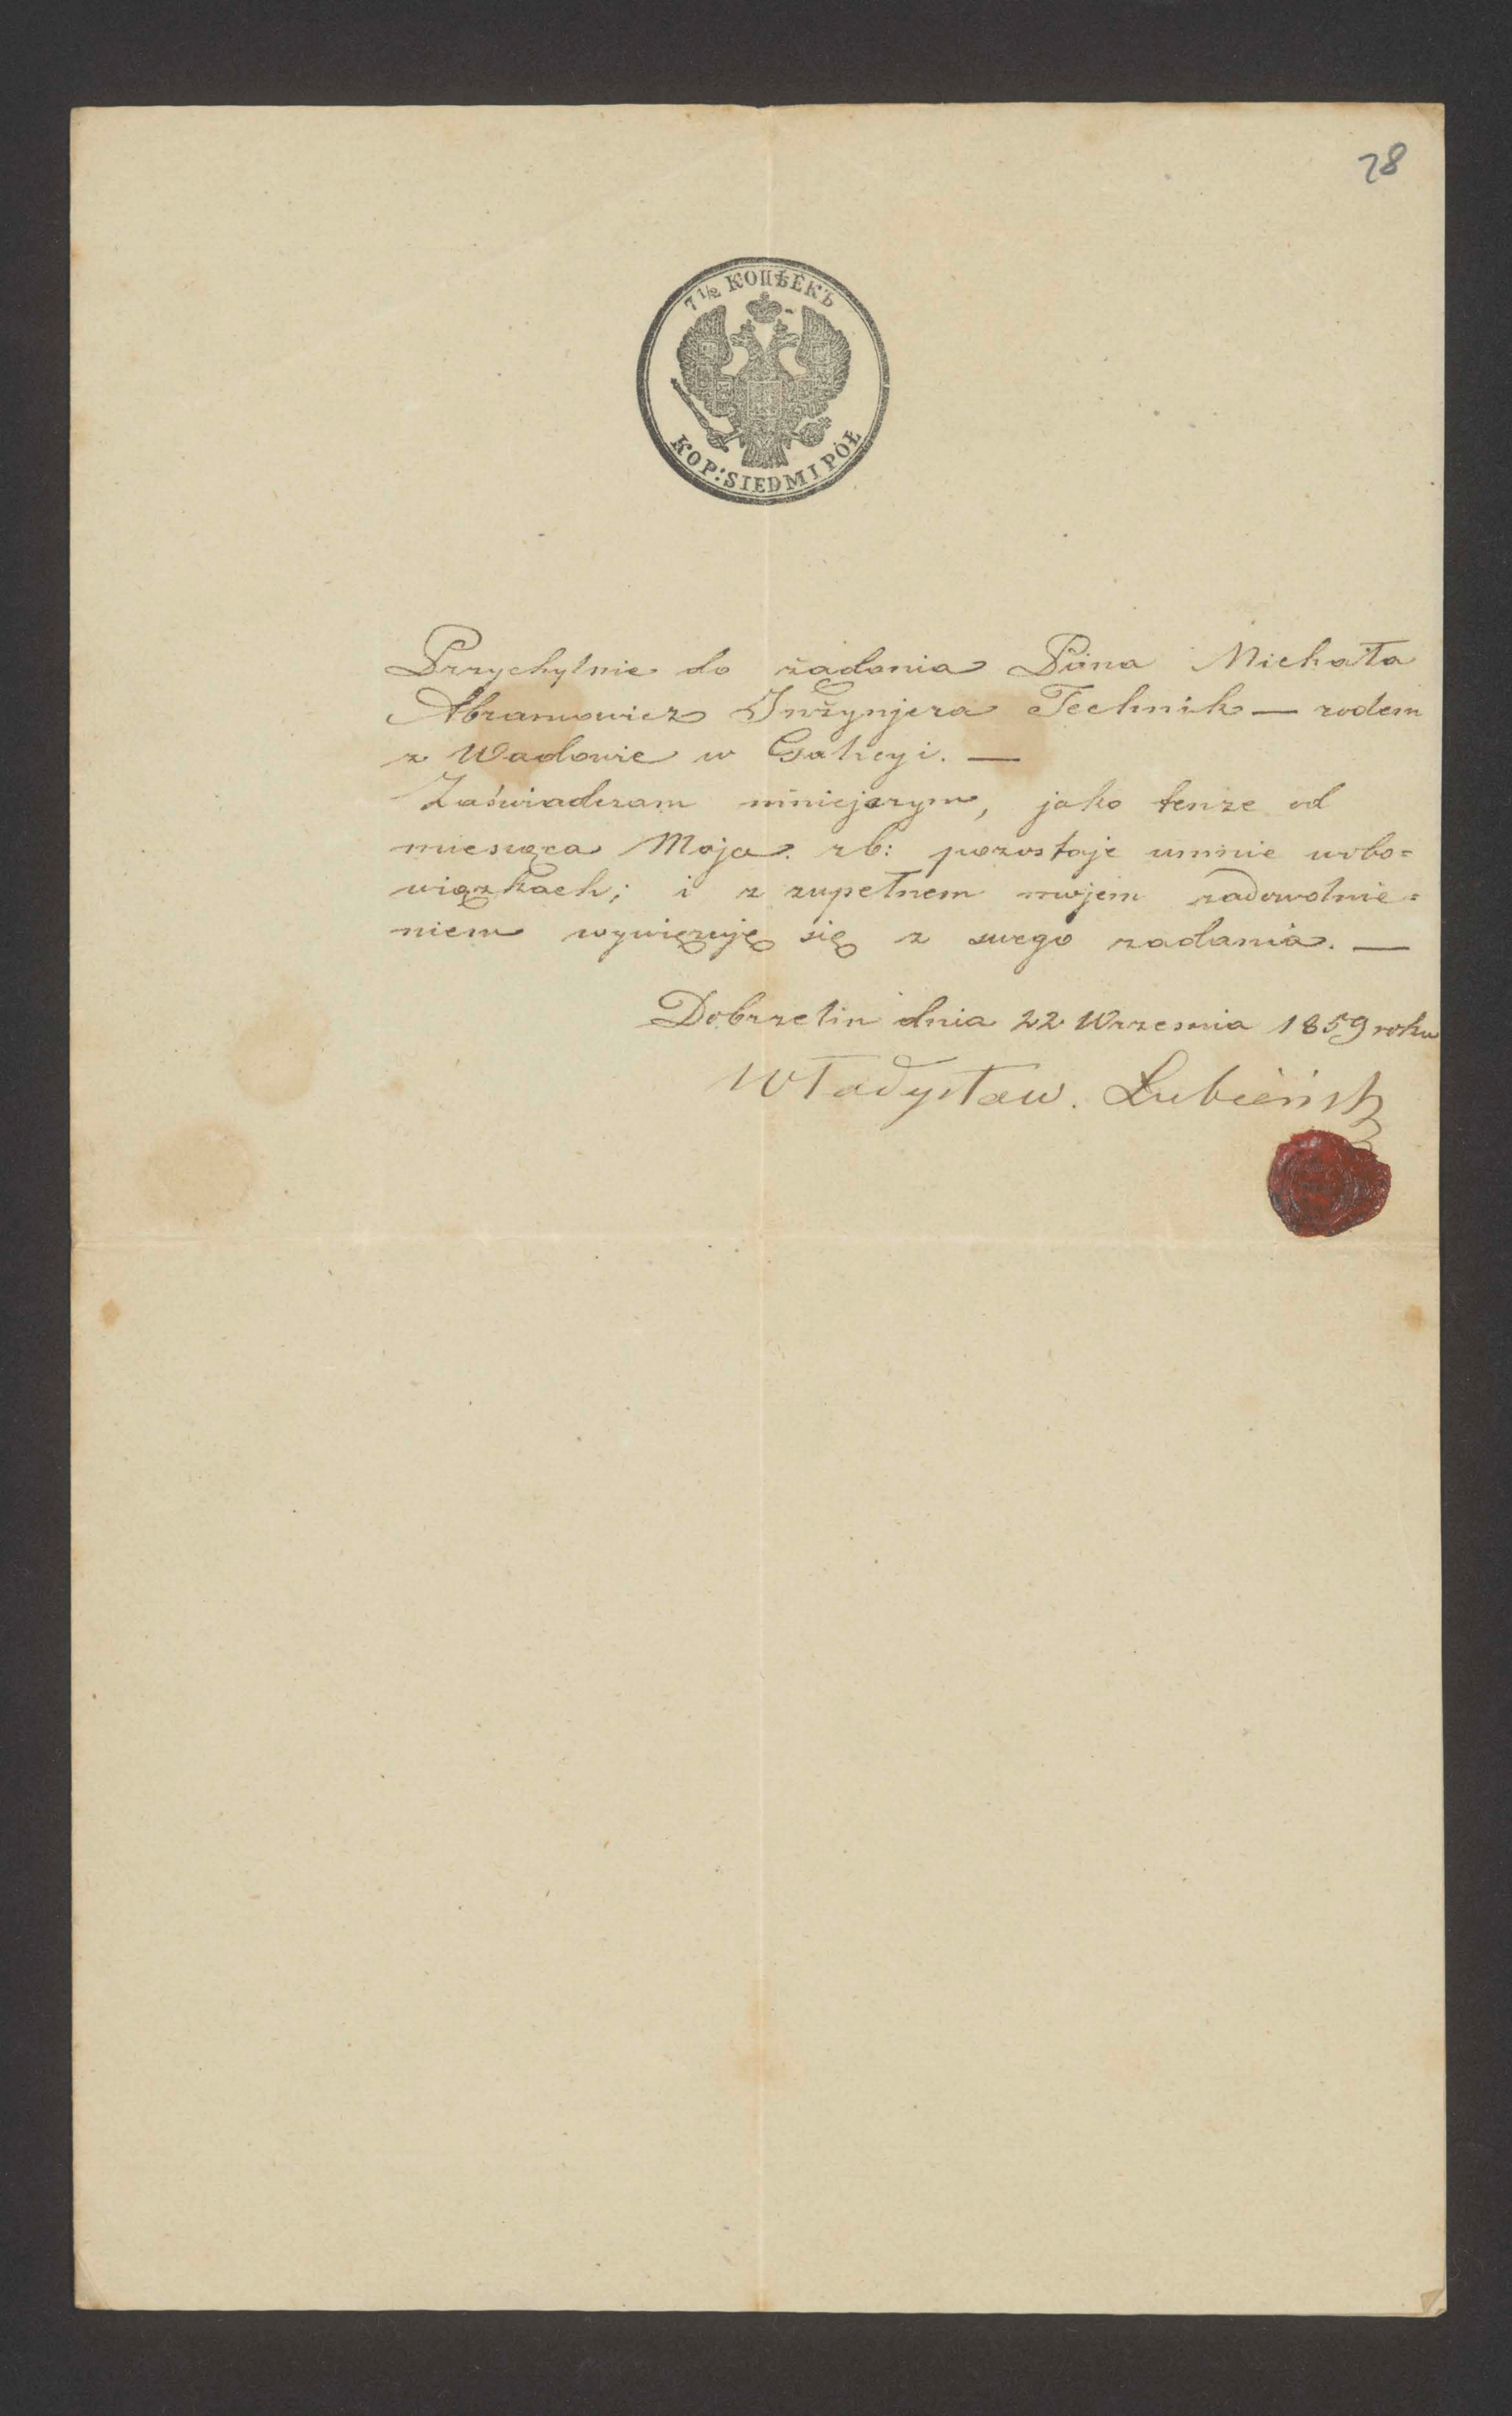 28
7 1/2 КОПѢЕКЪ
KOP: SIEDM I PÓŁ
Przychylnie do żadania Pana Michała
Abramowicz Inżynjera Technik — rodem
z Wadowic w Galicyi. —
Zaświadczam niniejszym, jako tenże od
miesiąca Maja rb: pozostaje umnie wobo=
wiązkach; i z zupełnem mojem zadowolnie=
niem wywięzuję się z swego zadania. —
Dobrzelin dnia 22 Września 1859 roku
Władysław. Łubieński